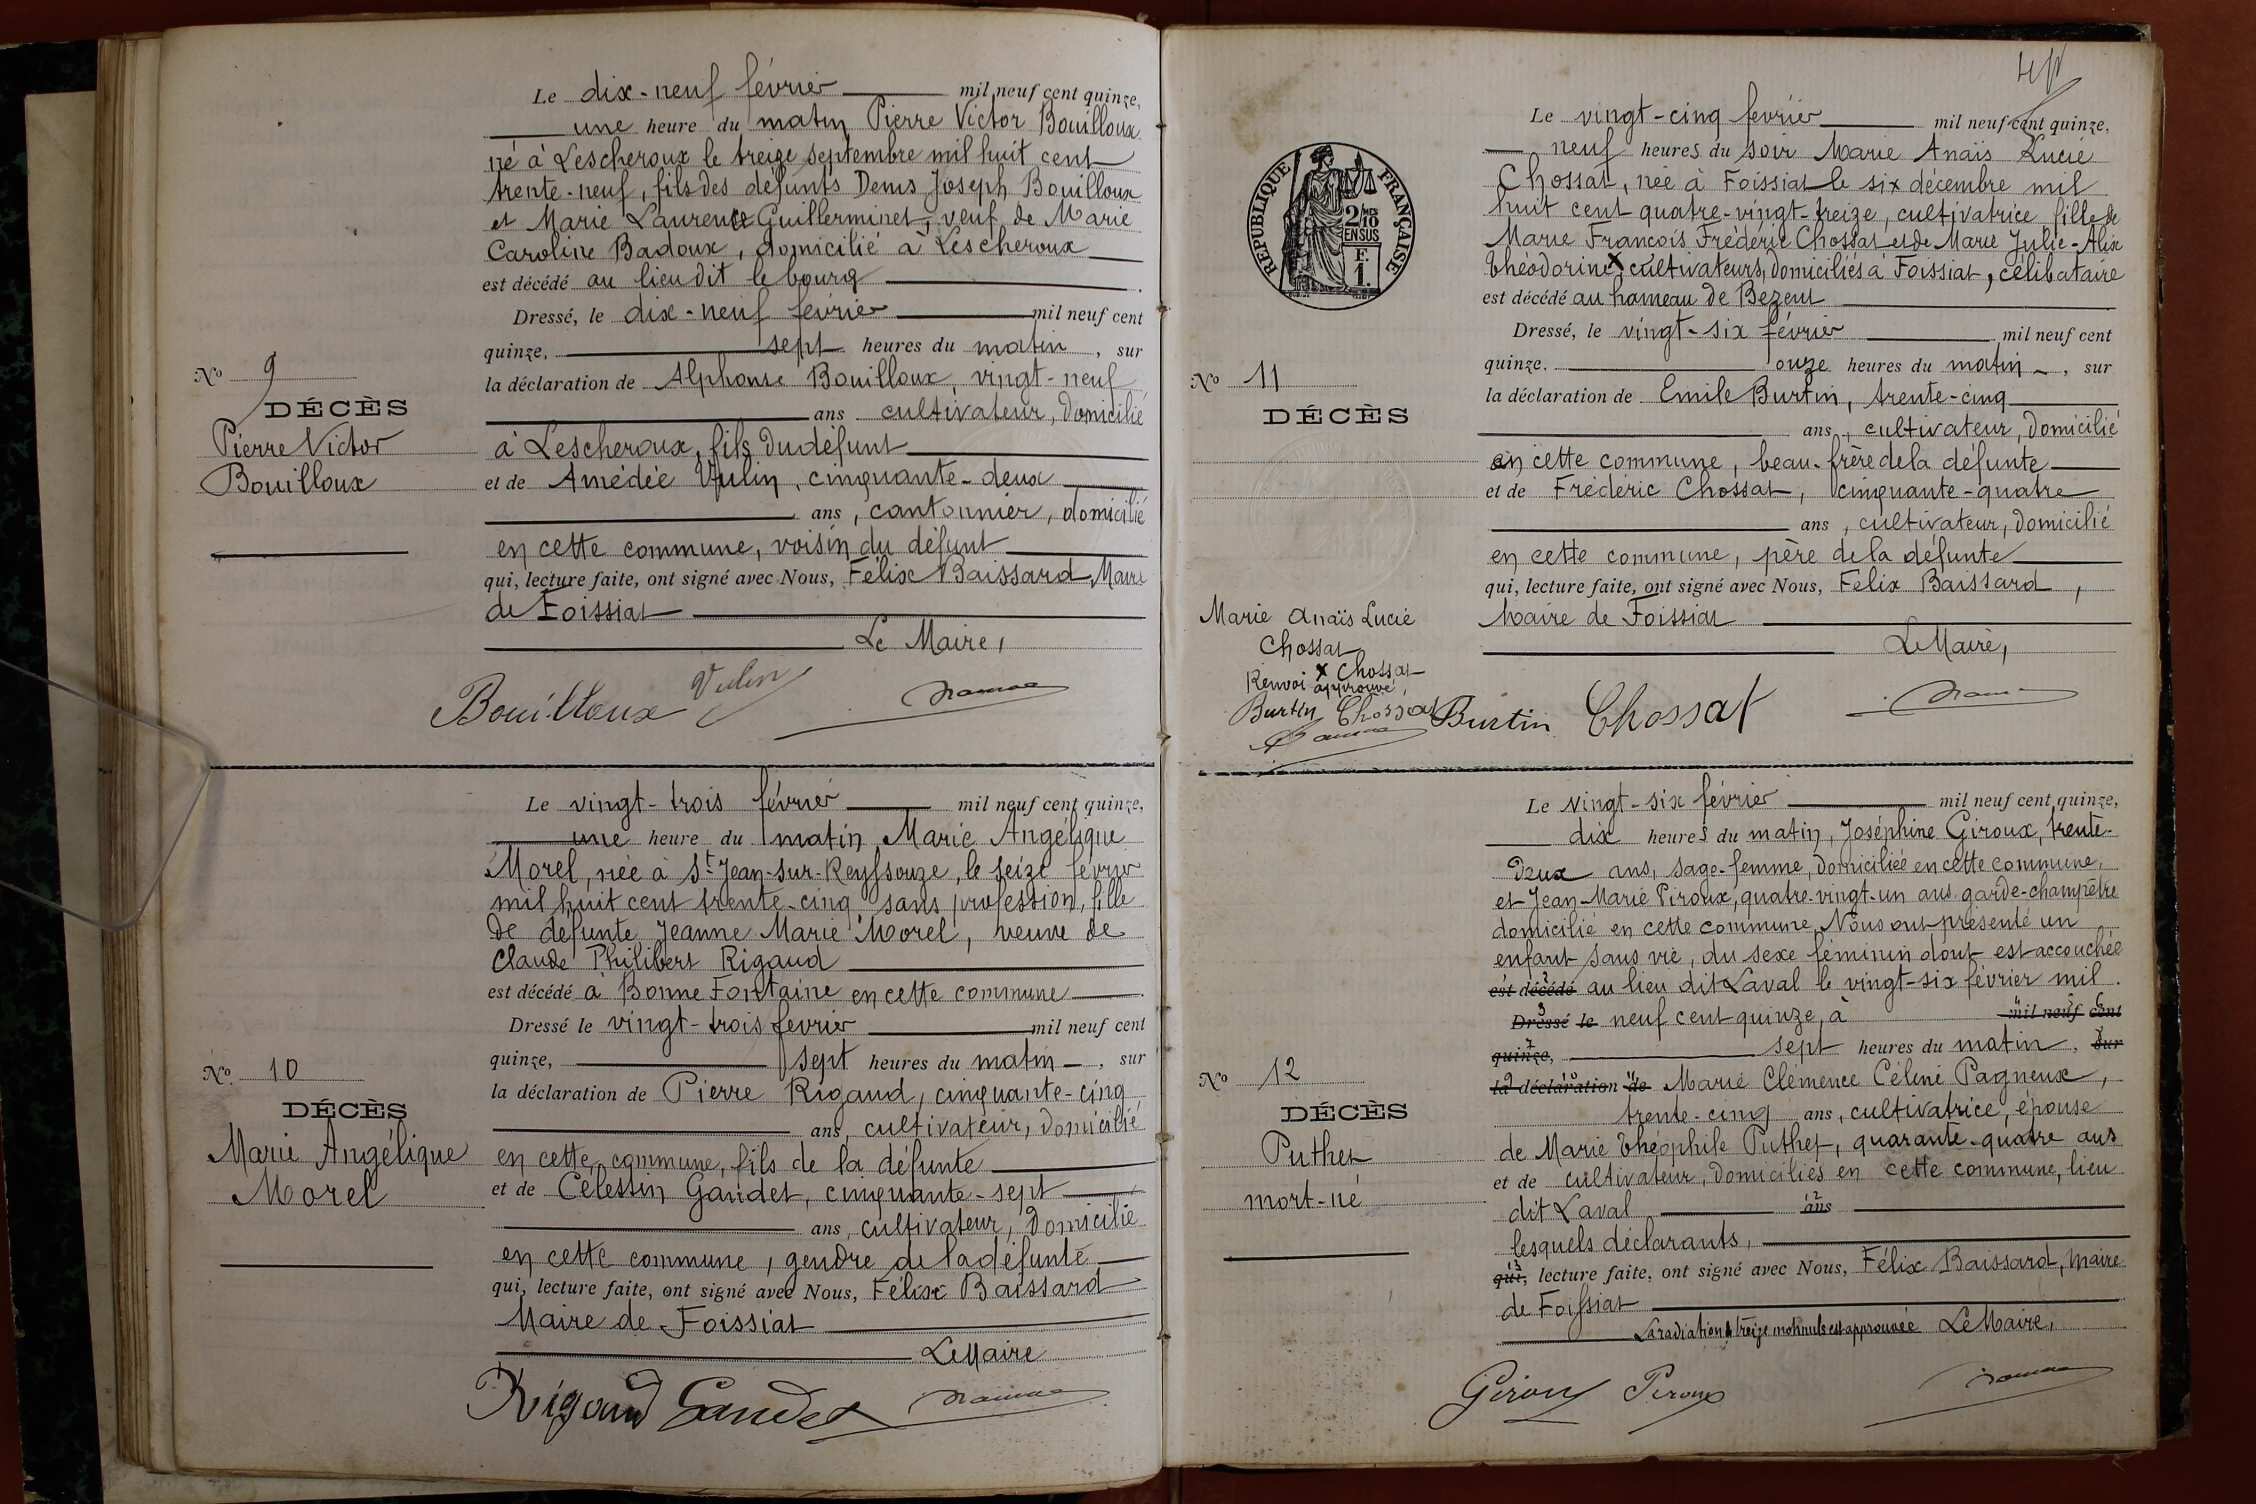 Le dix-neuf février mil neuf cent quinze,
une heure du matin Pierre Victor Bouilloux
né à Lescheroux le treize septembre mil huit cent
trente-neuf, fils des défunts Denis Joseph Bouilloux
et Marie Laurence Guillerminet, veuf de Marie
Caroline Badoux, domicilié à Lescheroux
est décédé au lieu dit le bourg
Dressé, le dix-neuf février mil neuf cent
quinze, sept heures du matin, sur
la déclaration de Alphonse Bouilloux, vingt-neuf
ans cultivateur, domicilié
à Lescheroux, fils du défunt
et de Amédée Vulin, cinquante-deux
ans, cantonnier, domicilié
en cette commune, voisin du défunt
qui, lecture faite, ont signé avec Nous, Félix Baissard, Maire
de Foissiat
Le Maire,
Bouilloux Vulin
No 9
DÉCÈS
Pierre Victor
Bouilloux
Le vingt-trois février mil neuf cent quinze,
une heure du matin Marie Angélique
Morel, née à St Jean-sur-Reyssouze, le seize février
mil huit cent trente-cinq sans profession, fille
de défunte Jeanne Marie Morel, veuve de
Claude Philibert Rigaud
est décédé à Bonne Fontaine en cette commune
Dressé le vingt-trois février mil neuf cent
quinze, sept heures du matin, sur
la déclaration de Pierre Rigaud, cinquante-cinq
ans, cultivateur, domicilié
en cette commune, fils de la défunte
et de Célestin Gaudet, cinquante-sept
ans, cultivateur, domicilié
en cette commune, gendre de la défunte
qui, lecture faite, ont signé avec Nous, Félix Baissard
Maire de Foissiat
Le Maire
Rigaud Gaudet
No 10
DÉCÈS
Marie Angélique
Morel
RÉPUBLIQUE FRANÇAISE
2/10 MES
EN SUS
F.
1.
Le vingt-cinq février mil neuf cent quinze,
neuf heures du soir Marie Anaïs Lucie
Chossat, née à Foissiat le six décembre mil
huit cent quatre-vingt-treize, cultivatrice fille de
Marie François Frédéric Chossat et de Marie Julie-Alix
Théodorine X cultivateurs, domiciliés à Foissiat, célibataire
est décédé au hameau de Bezent
Dressé, le vingt-six février mil neuf cent
quinze. onze heures du matin, sur
la déclaration de Emile Burtin, trente-cinq
ans, cultivateur, domicilié
en cette commune, beau-frère de la défunte
et de Frédéric Chossat, cinquante-quatre
ans, cultivateur, domicilié
en cette commune, père de la défunte
qui, lecture faite, ont signé avec Nous, Félix Baissard,
Maire de Foissiat
Le Maire,
Burtin Chossat
No 11
DÉCÈS
Marie Anaïs Lucie
Chossat
Renvoi X Chossat
approuvé,
Burtin Chossat
Le vingt-six février mil neuf cent quinze,
dix heures du matin, Joséphine Giroux, trente-
deux ans, sage-femme, domiciliée en cette commune,
et Jean-Marie Piroux, quatre-vingt-un ans garde-champêtre
domicilié en cette commune Nous ont présenté un
enfant sans vie, du sexe féminin dont est accouchée
est décédé au lieu dit Laval le vingt-six février mil
Dressé le neuf cent quinze, à mil neuf cent
quinze, sept heures du matin, sur
la déclaration de Marie Clémence Céline Pagneux,
trente-cinq ans, cultivatrice, épouse
de Marie Théophile Puthet, quarante-quatre ans
et de cultivateur, domiciliés en cette commune, lieu
dit Laval ans
lesquels déclarants,
qui, lecture faite, ont signé avec Nous, Félix Baissard, Maire
de Foissiat
La radiation de treize mots nuls est approuvée Le Maire,
Giroux Piroux
No 12
DÉCÈS
Puthet
mort-né